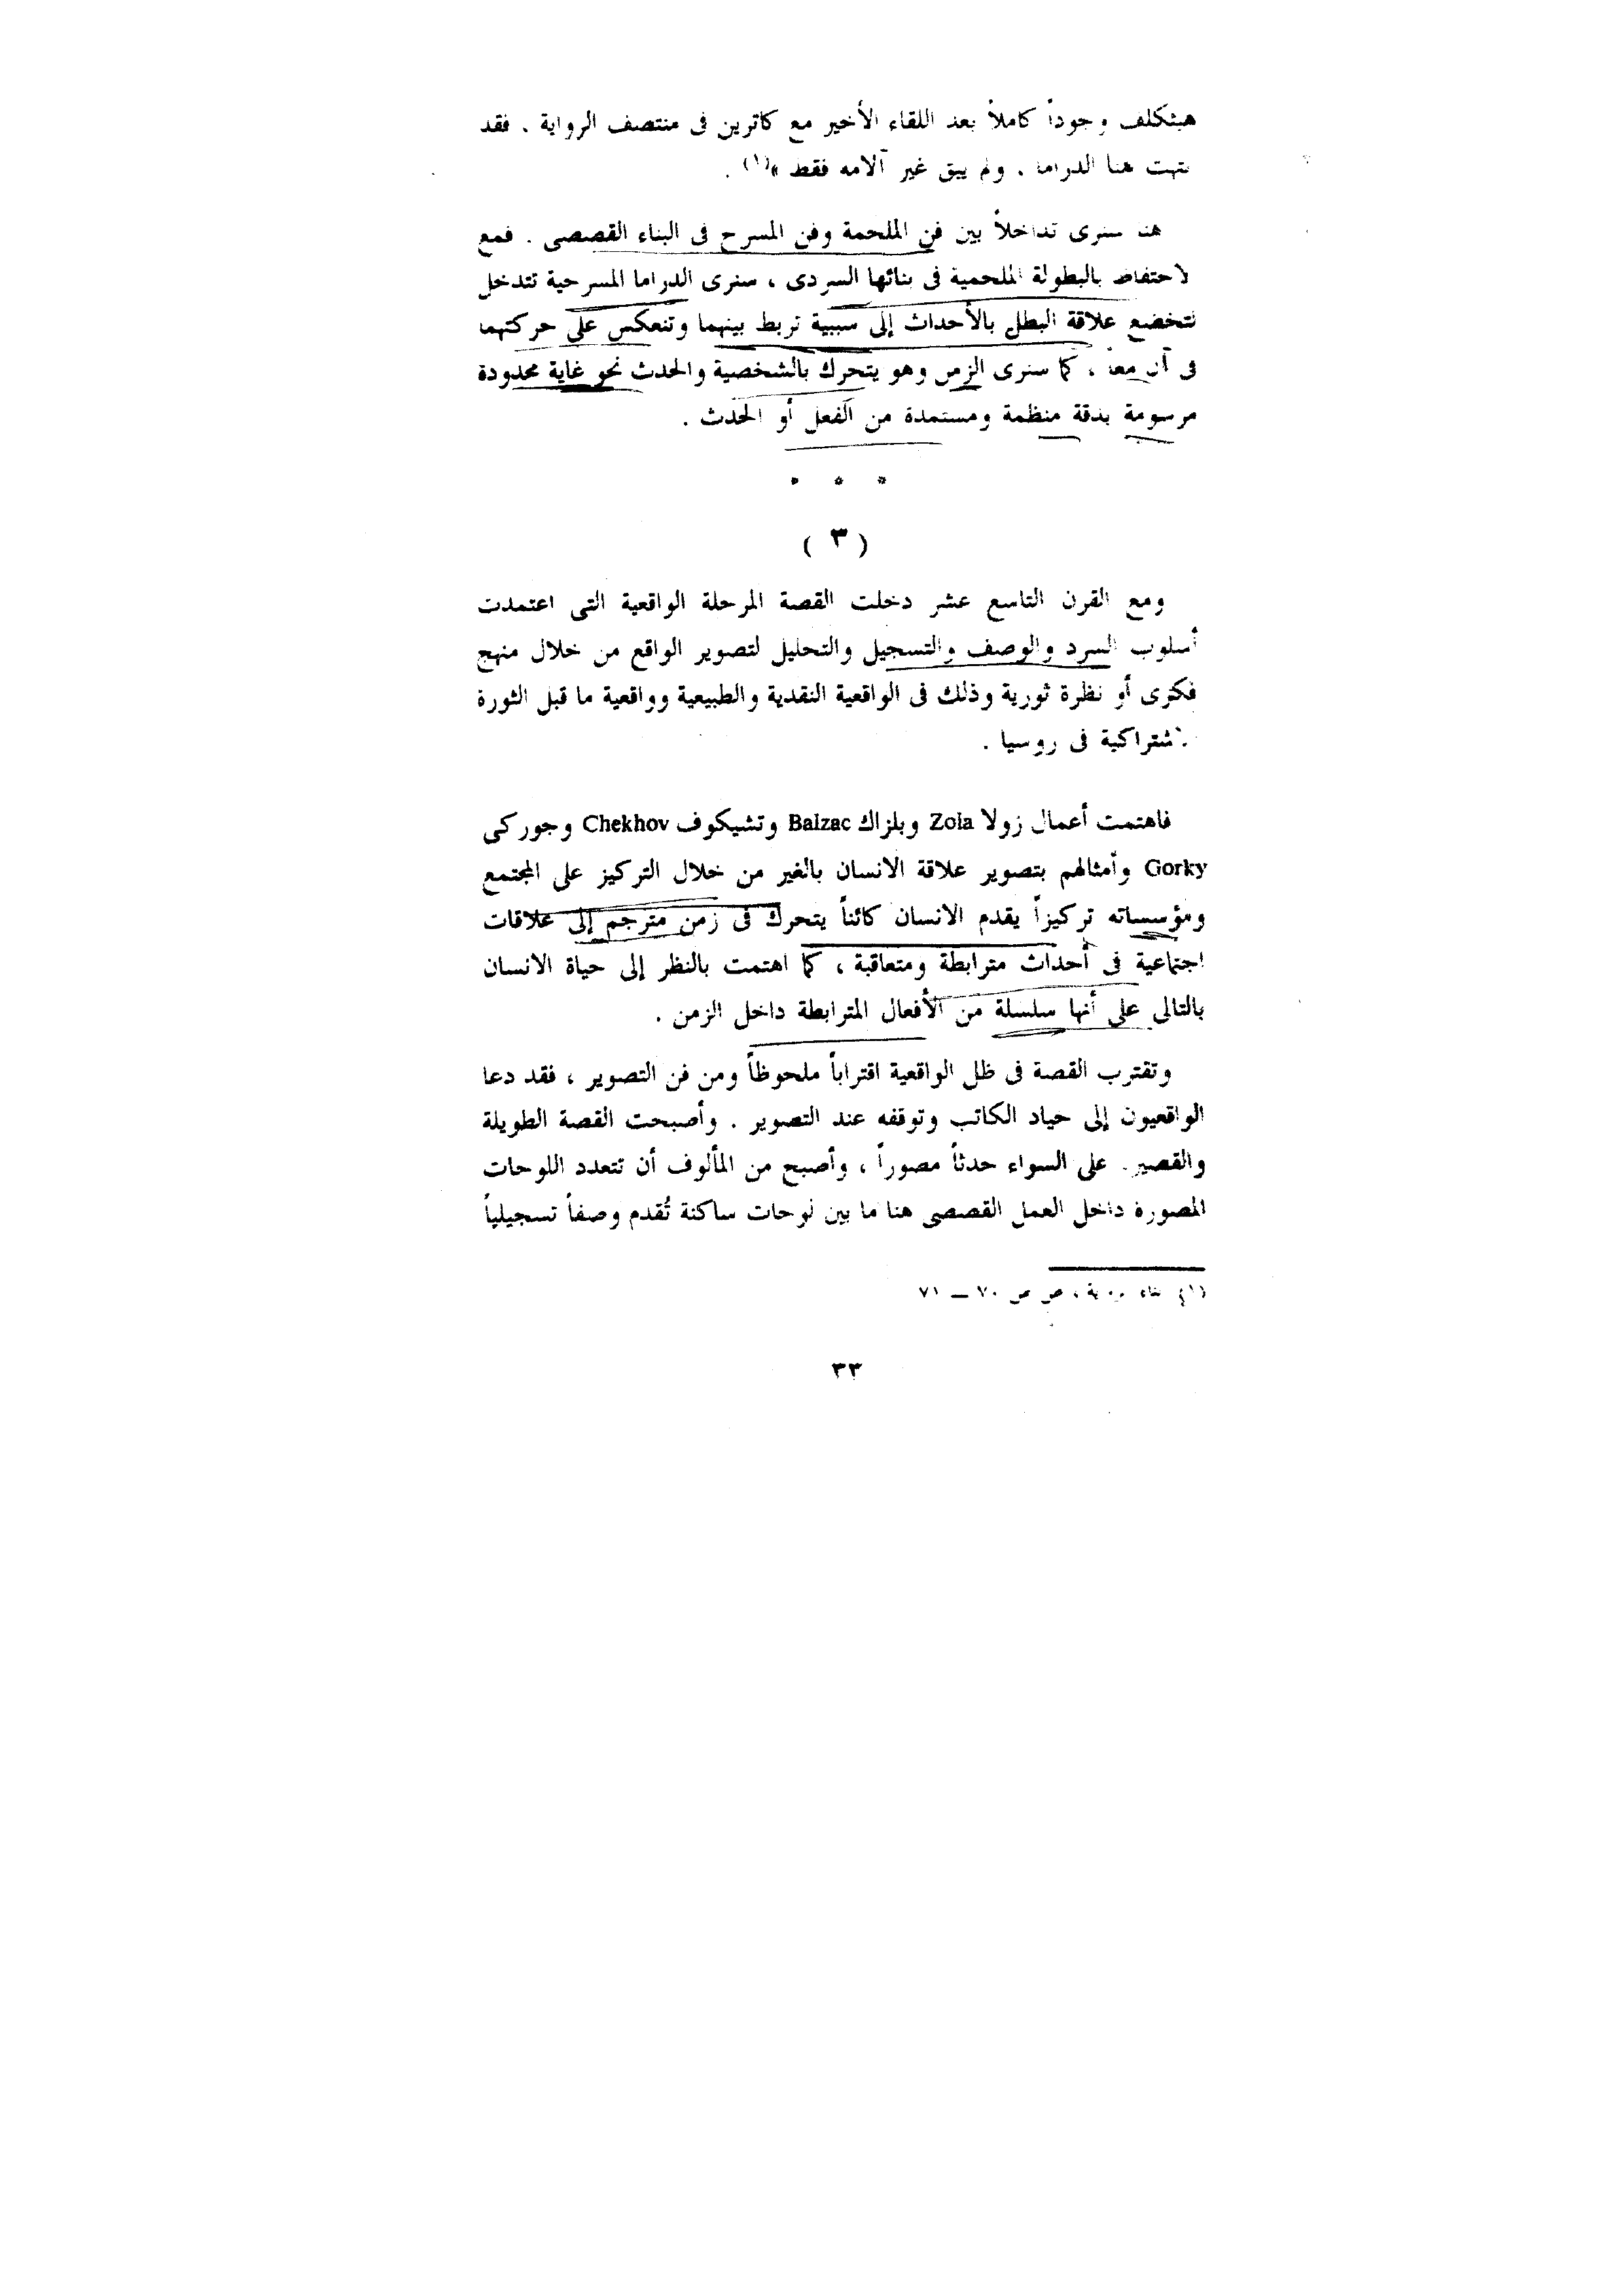 هبثكلف وجوداً كاملاً بعد اللقاء الأخير مع كاترين فى منتصف الرواية . فقد
نتهت هنا الدراما . ولم يبق غير آلامه فقط »(١) .
هنا سنرى تداخلاً بين فن الملحمة وفن المسرح فى البناء القصصى . فمع
لاحتفاظ بالبطولة الملحمية فى بنائها السردى ، سنرى الدراما المسرحية تتدخل
لتخضع علاقة البطل بالأحداث إلى سببية تربط بينهما وتنعكس على حركتهما
فى آن معاً ، كما سنرى الزمن وهو يتحرك بالشخصية والحدث نحو غاية محدودة
مرسومة بدقة منظمة ومستمدة من الفعل أو الحدث .
* * *
( ٣ )
ومع القرن التاسع عشر دخلت القصة المرحلة الواقعية التى اعتمدت
أسلوب السرد والوصف والتسجيل والتحليل لتصوير الواقع من خلال منهج
فكرى أو نظرة ثورية وذلك فى الواقعية النقدية والطبيعية وواقعية ما قبل الثورة
الاشتراكية فى روسيا .
فاهتمت أعمال زولا Zola وبلزاك Balzac وتشيكوف Chekhov وجوركى
Gorky وأمثالهم بتصوير علاقة الانسان بالغير من خلال التركيز على المجتمع
ومؤسساته تركيزاً يقدم الانسان كائناً يتحرك فى زمن مترجم إلى علاقات
اجتماعية فى أحداث مترابطة ومتعاقبة ، كما اهتمت بالنظر إلى حياة الانسان
بالتالى على أنها سلسلة من الأفعال المترابطة داخل الزمن .
وتقترب القصة فى ظل الواقعية اقتراباً ملحوظاً ومن فن التصوير ، فقد دعا
الواقعيون إلى حياد الكاتب وتوقفه عند التصوير . وأصبحت القصة الطويلة
والقصيرة على السواء حدثاً مصوراً ، وأصبح من المألوف أن تتعدد اللوحات
المصورة داخل العمل القصصى هنا ما بين لوحات ساكنة تُقدم وصفاً تسجيلياً
(١) بناء الرواية ، ص ص ٧٠ ــ ٧١
٣٣